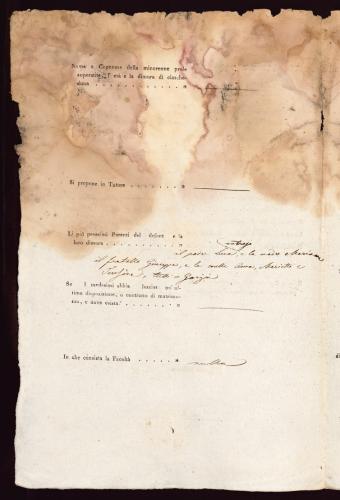 Nome e Cognome della minorenne prole
superstite, l' età e la dimora di ciasche-
duno . . . . . . . . . . . . .
Si propone in Tutore . . . . . . . .
Li più prossimi Parenti del defunto e la
loro dimora . . . . . . . . . . .
il padre Luca, e la madre Marianna
il fratello Giuseppe, e le sorelle Anna, Marietta e
tutti a
Se i medesimi abbia lasciat qu' ul-
tima disposizione, o contratto di matrimo-
nio, e dove esista? . . . . . . . .
In che consista la Facoltà . . . . . .
nulla